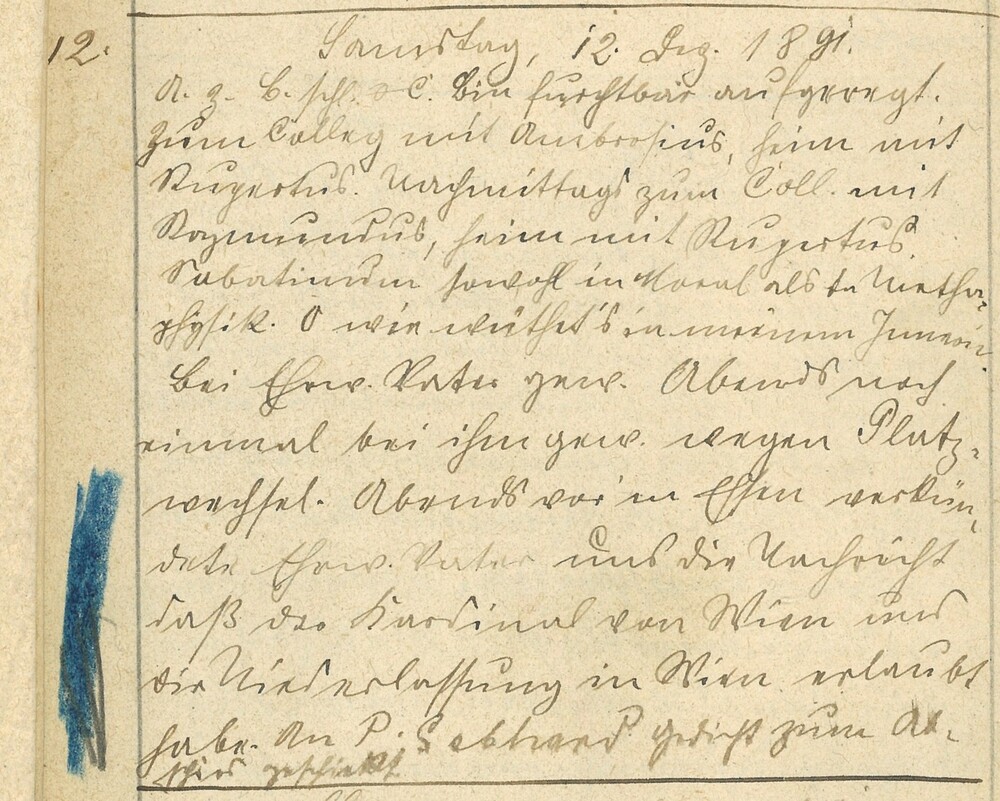 12.
Samstag, 12. Dez. 1891.
A. g. B. schl. C. Bin furchtbar aufgeregt.
Zum Colleg mit Ambrosius, heim mit
Rupertus. Nachmittags zum Coll. mit
Raymundus, heim mit Rupertus
Sabatinum sowohl in Moral als in Metha-
physik. O wie wüthet's in meinem Innern.
Bei Ehrw. Vater gew. Abends noch
einmal bei ihm gew. wegen Platz-
wechsel. Abends vor'm Essen verkün-
dete Ehrw. Vater uns die Nachricht
daß der Kardinal von Wien uns
die Niederlassung in Wien erlaubt
habe. An P. Gedicht zum Ab-
schied geschickt